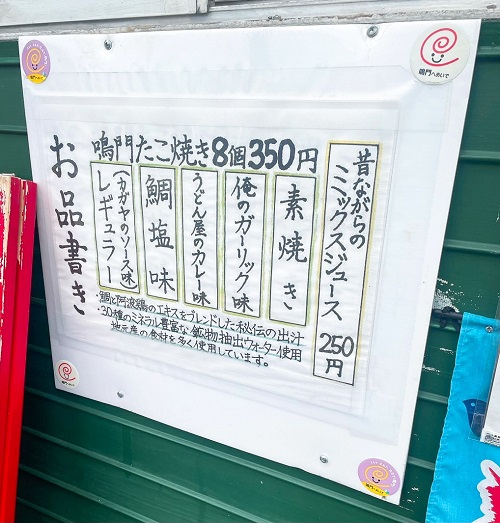 お品書き
鳴門たこ焼き8個350円
レギュラー
(カガヤのソース味)
鯛塩味
うどん屋のカレー味
俺のガーリック味
素焼き
昔ながらの
ミックスジュース
250円
・鯛と阿波鶏のエキスをブレンドした秘伝の出汁
・30種のミネラル豊富な鉱物抽出ウォーター使用
地元産の食材を多く使用しています。
鳴門へおいで